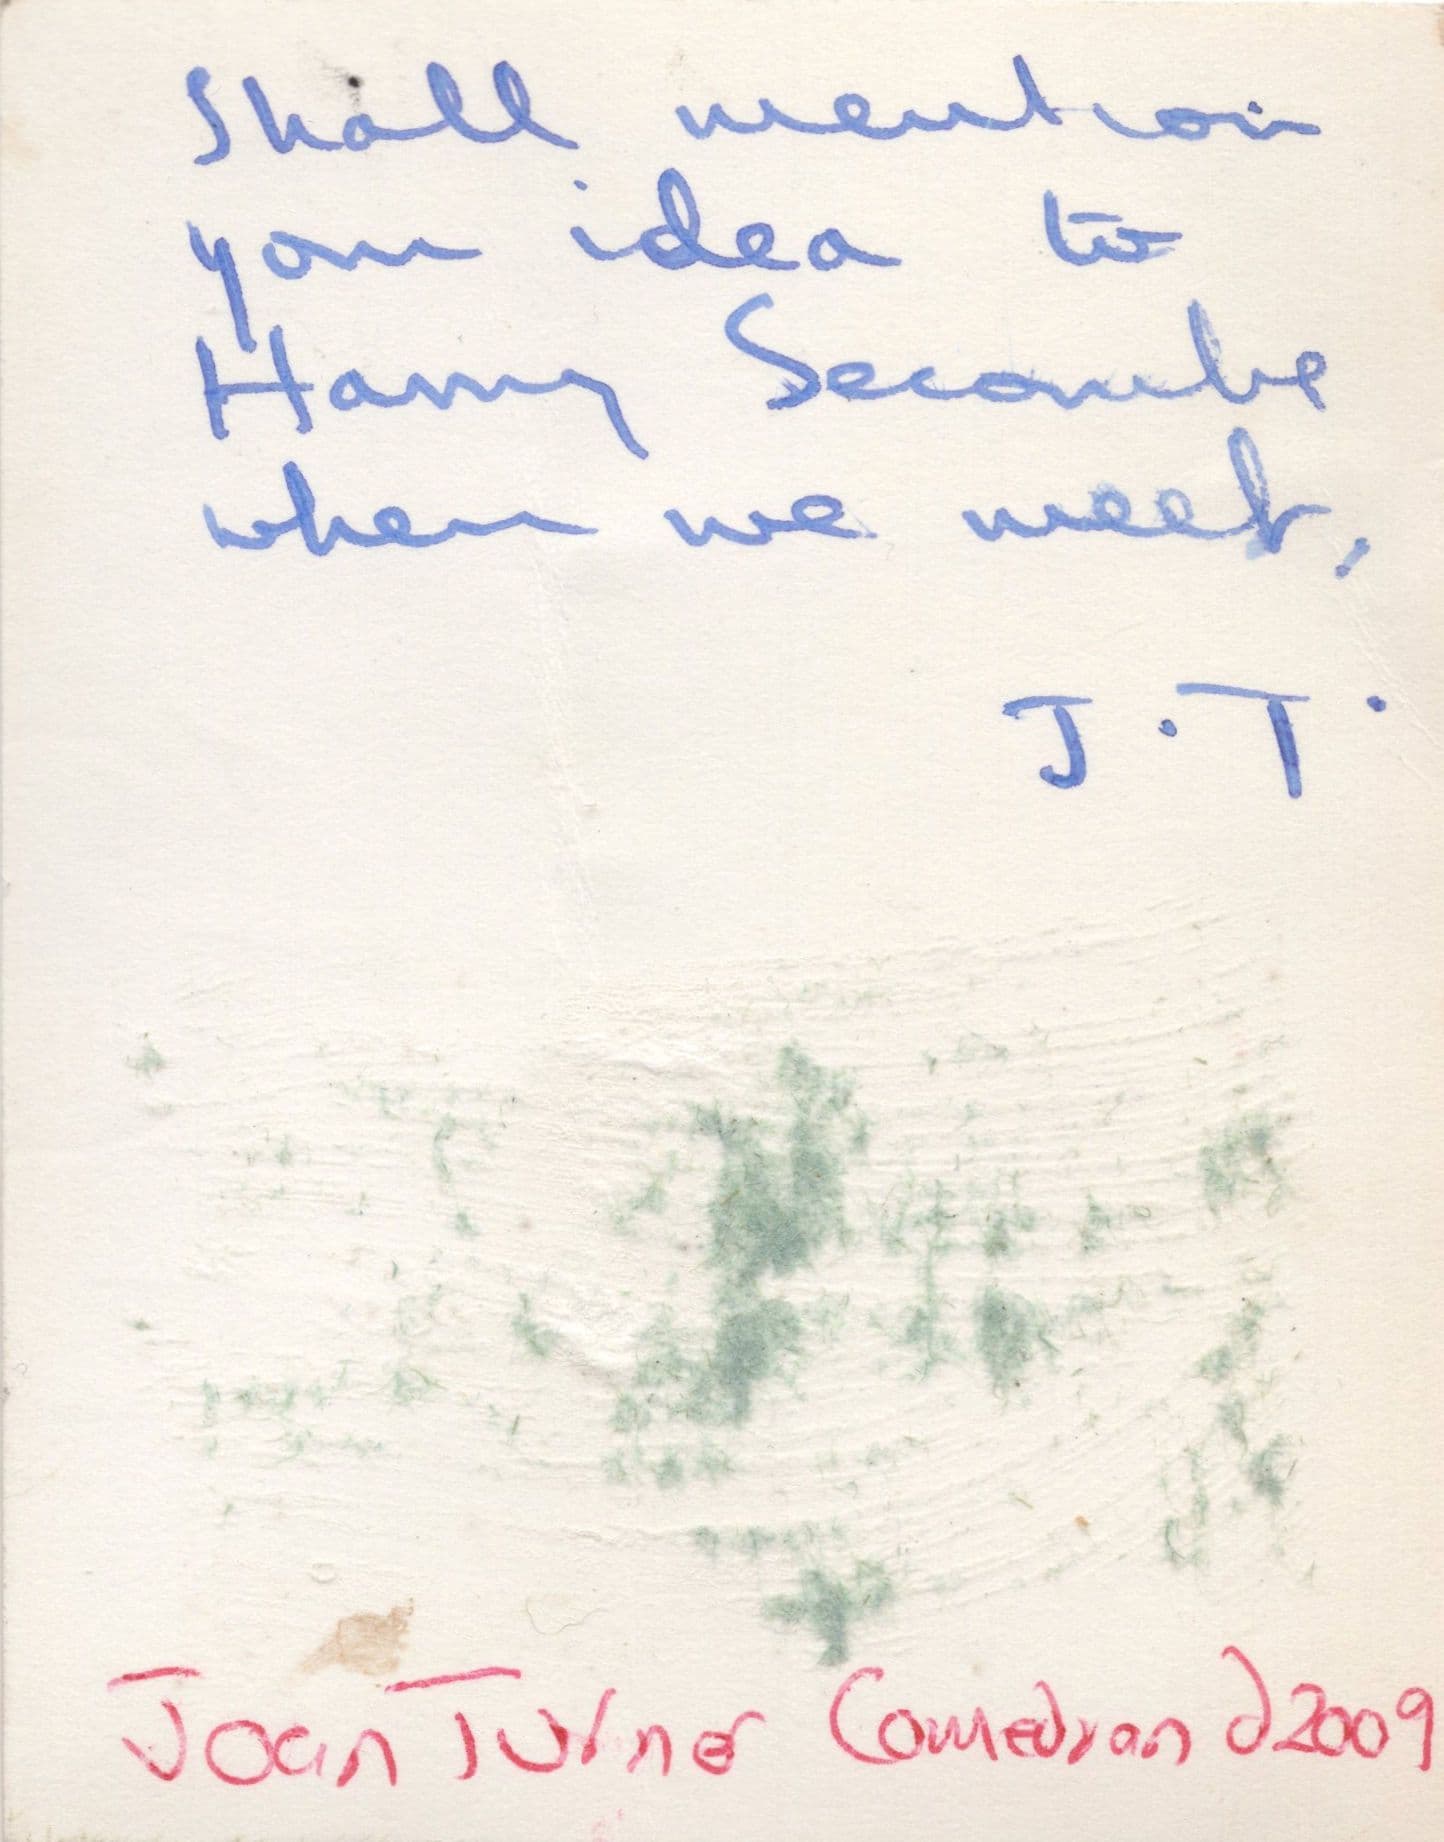 Shall mention
your idea to
Harry Secombe
when we meet.
J.T.
Joan Turner Comedian d2009